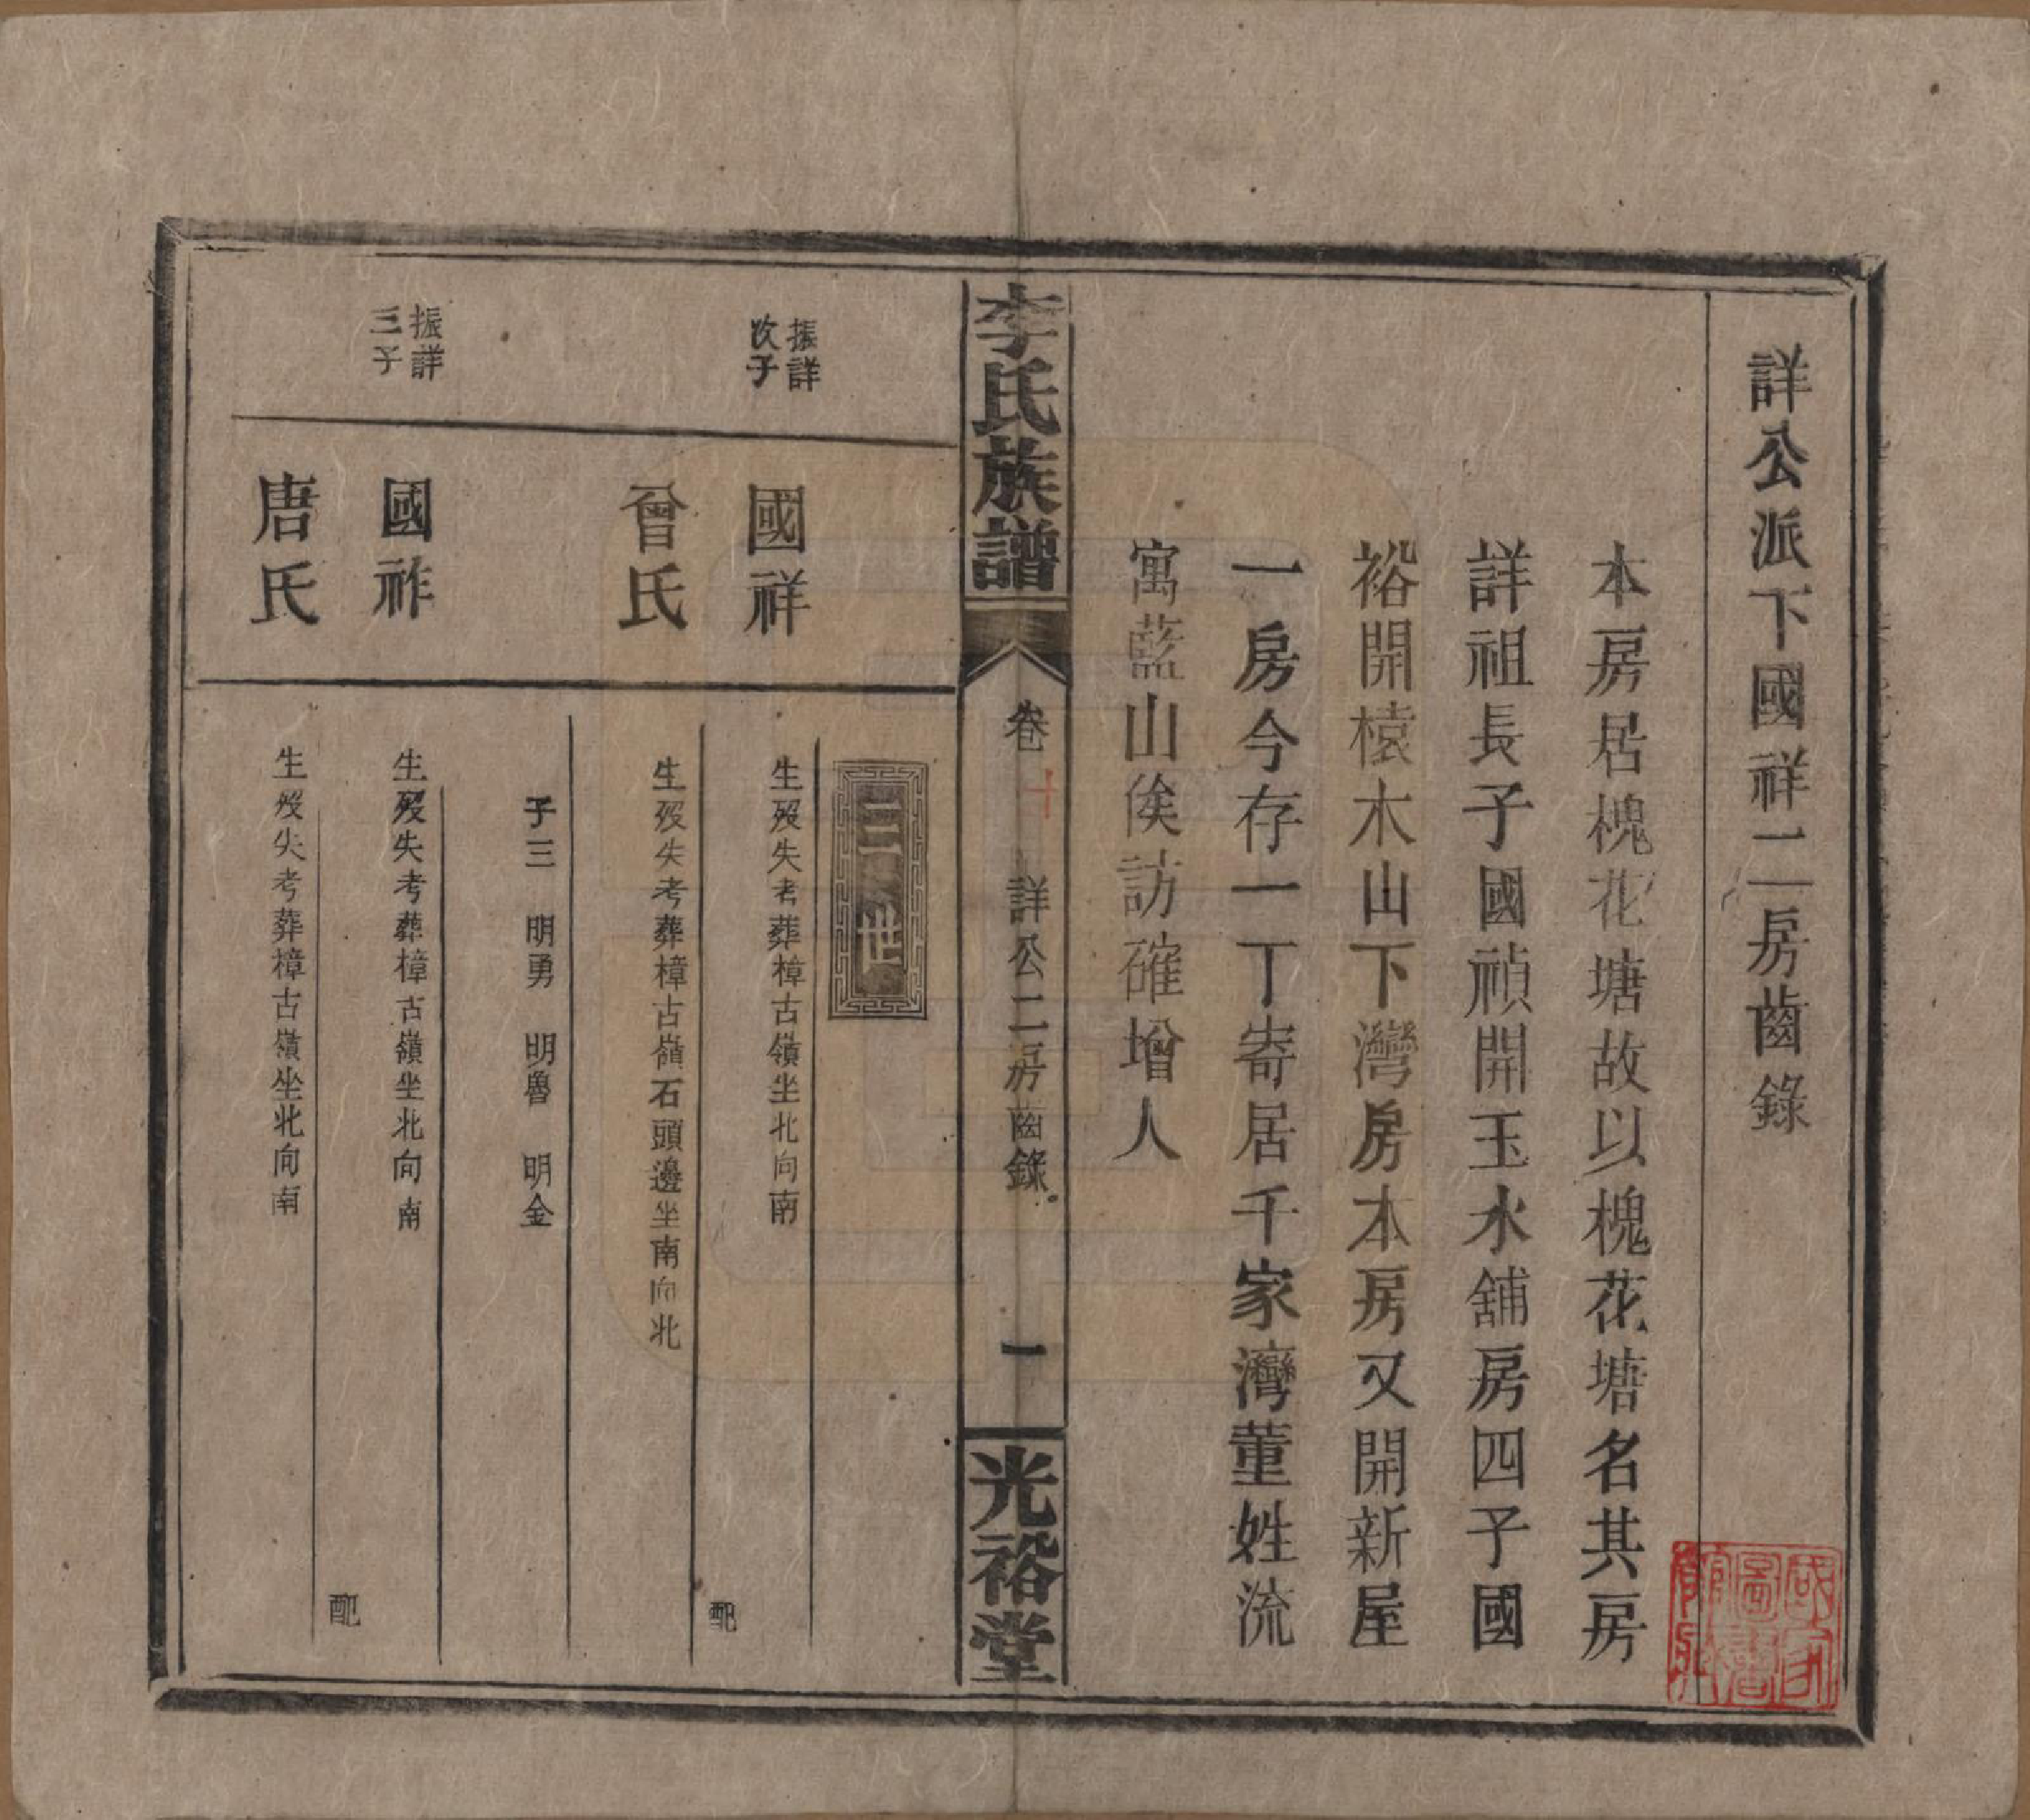 詳公派下國祥二房齒錄
本房居槐花塘故以槐花塘名其房
詳祖長子國禎開玉水舖房四子國
裕開榬木山下灣房本房又開新屋
一房今存一丁寄居千家灣董姓流
寓藍山俟訪確增人
李氏族譜
卷十
詳公二房齒錄
一
光裕堂
二世
振詳
次子
國祥
生歿失考葬樟古嶺坐北向南
配
曾氏
生歿失考葬樟古嶺石頭邊坐南向北
子三 明勇 明魯 明金
振詳
三子
國祚
生歿失考葬樟古嶺坐北向南
配
唐氏
生歿失考葬樟古嶺坐北向南
國家
圖書
館藏